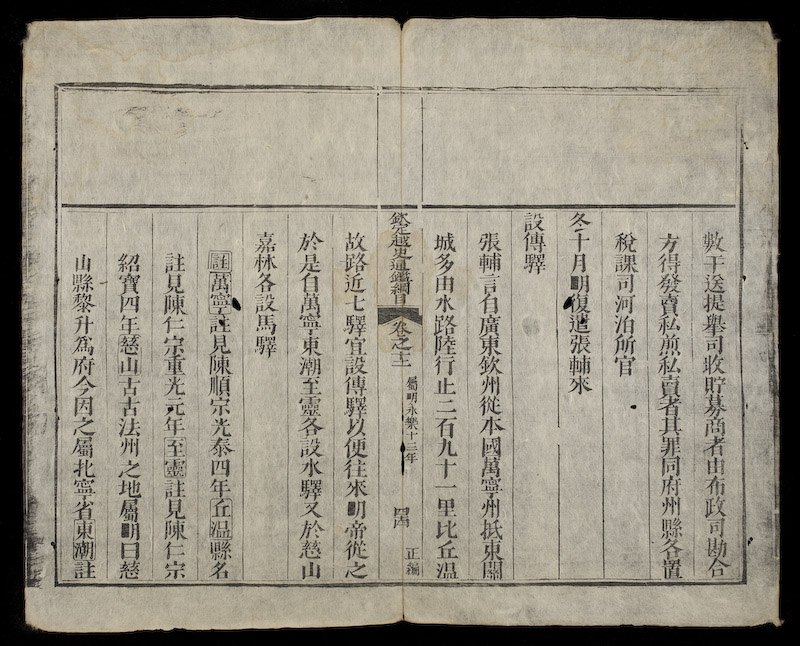 數干送提舉司收貯募商者由布政司勘合
方得發賣私煎私賣者其罪同府州縣各置
稅課司河泊所官
冬十月明復遣張輔來
設傳驛
張輔言自廣東欽州從本國萬寧州抵東關
城多由水路陸行止二百九十一里比丘温
欽定越史通鑑綱目
卷之十三
屬明永樂十三年
正編
故路近七驛宜設傳驛以便往來明帝從之
於是自萬寧東潮至靈各設水驛又於慈山
嘉林各設馬驛
註萬寧註見陳順宗光泰四年丘温縣名
註見陳仁宗重光元年至靈註見陳仁宗
紹寶四年慈山古古法州之地屬明曰慈
山縣黎升爲府今因之屬北寧省東潮註